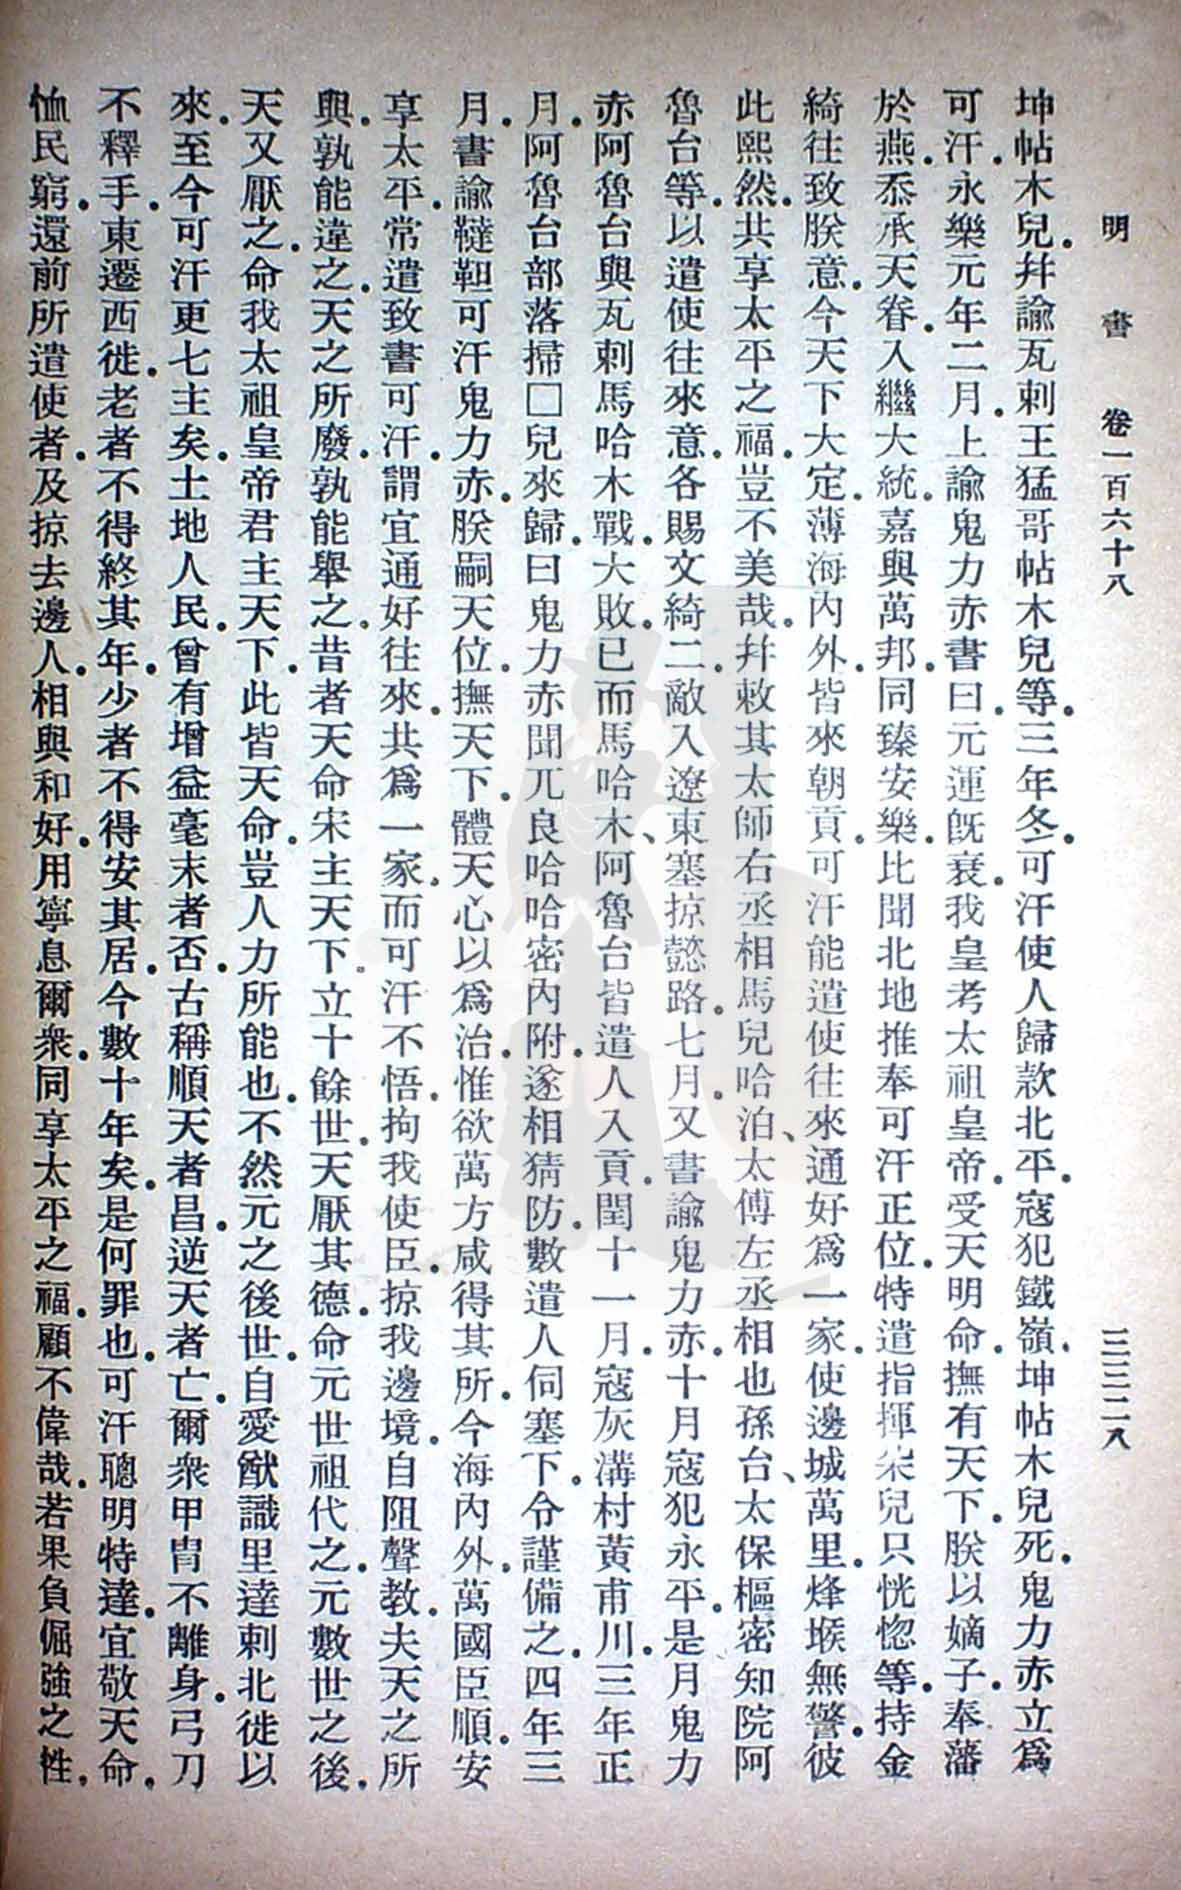 明書 卷一百六十八 三三二八
坤帖木兒.并諭瓦剌王猛哥帖木兒等.三年冬.可汗使人歸款北平.寇犯鐵嶺.坤帖木兒死.鬼力赤立爲
可汗.永樂元年二月.上諭鬼力赤書曰.元運旣衰.我皇考太祖皇帝.受天明命.撫有天下.朕以嫡子.奉藩
於燕.忝承天眷.入繼大統.嘉與萬邦.同臻安樂.比聞北地推奉可汗正位.特遣指揮朶兒只恍惚等.持金
綺往致朕意.今天下大定.薄海內外.皆來朝貢.可汗能遣使往來通好爲一家.使邊城萬里.烽堠無警.彼
此熙然.共享太平之福.豈不美哉.幷敕其太師右丞相馬兒哈泊、太傅左丞相也孫台、太保樞密知院阿
魯台等.以遣使往來意.各賜文綺二.敵入遼東塞掠懿路.七月.又書諭鬼力赤.十月寇犯永平.是月鬼力
赤阿魯台與瓦剌馬哈木戰.大敗.已而馬哈木、阿魯台皆遣人入貢.閏十一月.寇灰溝村黃甫川.三年正
月.阿魯台部落掃□兒來歸.曰鬼力赤聞兀良哈哈密內附.遂相猜防.數遣人伺塞下.令謹備之.四年三
月.書諭韃靼可汗鬼力赤.朕嗣天位.撫天下.體天心以爲治.惟欲萬方咸得其所.今海內外.萬國臣順.安
享太平.常遣致書可汗.謂宜通好往來.共爲一家.而可汗不悟.拘我使臣.掠我邊境.自阻聲教.夫天之所
興.孰能違之.天之所廢.孰能舉之.昔者天命宋主天下.立十餘世.天厭其德.命元世祖代之.元數世之後.
天又厭之.命我太祖皇帝君主天下.此皆天命.豈人力所能也.不然元之後世.自愛猷識里達剌北徙以
來.至今可汗更七主矣.土地人民.曾有增益毫末者否.古稱順天者昌.逆天者亡.爾衆甲冑不離身.弓刀
不釋手.東遷西徙.老者不得終其年.少者不得安其居.今數十年矣.是何罪也.可汗聰明特達.宜敬天命.
恤民窮.還前所遣使者.及掠去邊人.相與和好.用寧息爾衆.同享太平之福.顧不偉哉.若果負倔強之性.